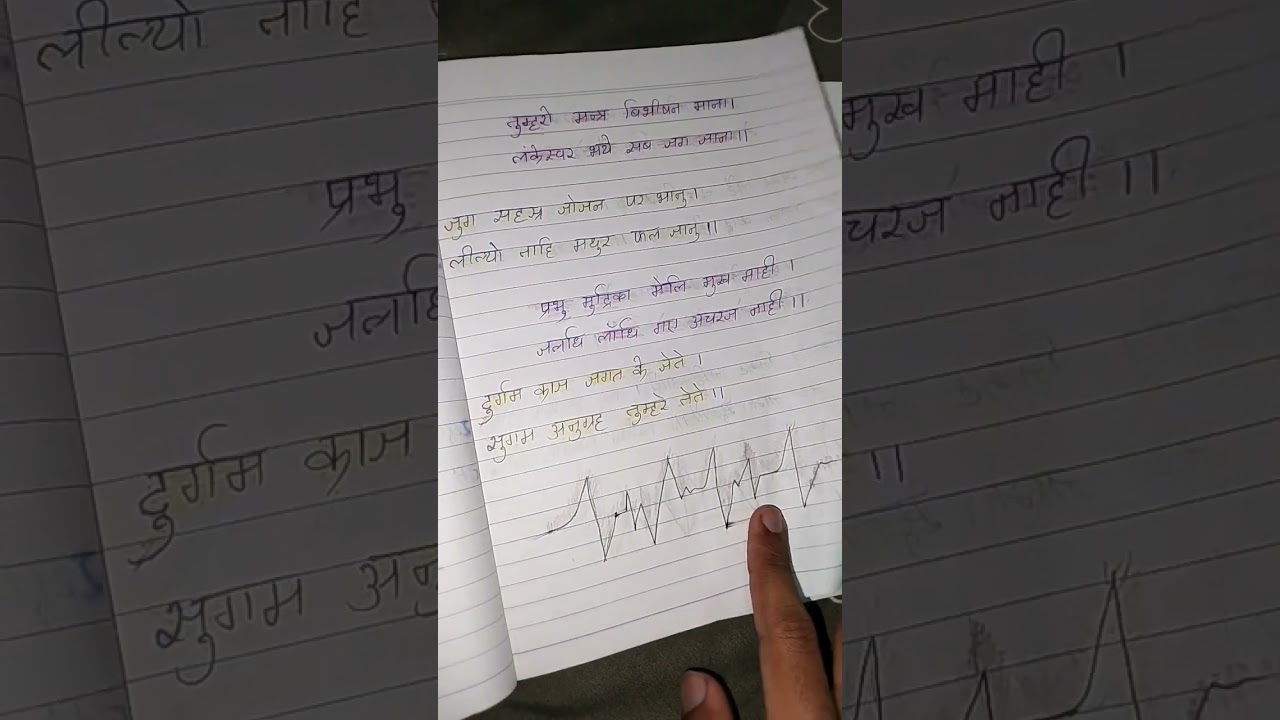 तुम्हरो मन्त्र बिभीषन माना।
लंकेस्वर भये सब जग जाना।।
जुग सहस्र जोजन पर भानु।
लील्यो ताहि मधुर फल जानु।।
प्रभु मुद्रिका मेलि मुख माही ।
जलधि लाँधि गए अचरज नाही ।।
दुर्गम काज जगत के जेते ।
सुगम अनुग्रह तुम्हरे तेते ।।